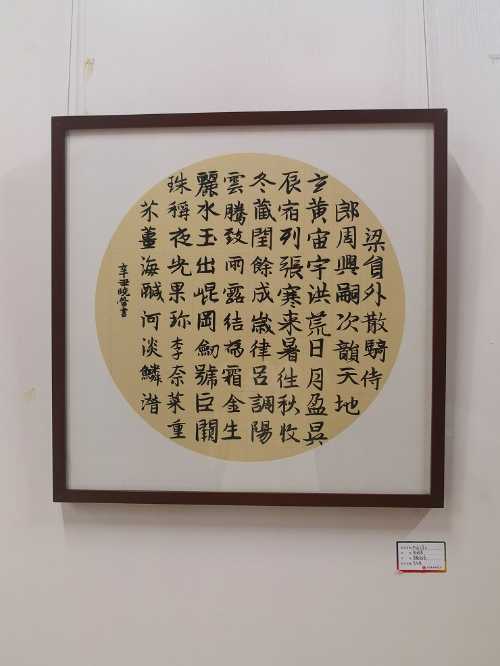 梁貟外散騎侍
郎周興嗣次韻天地
玄黃宙宇洪荒日月盈昃
辰宿列張寒来暑往秋收
冬藏閏餘成嵗律吕調陽
雲騰致雨露结為霜金生
麗水玉出崐岡劒號巨闕
珠稱夜光果珍李奈菜重
芥薑海醎河淡鱗潛
辛丑曉書